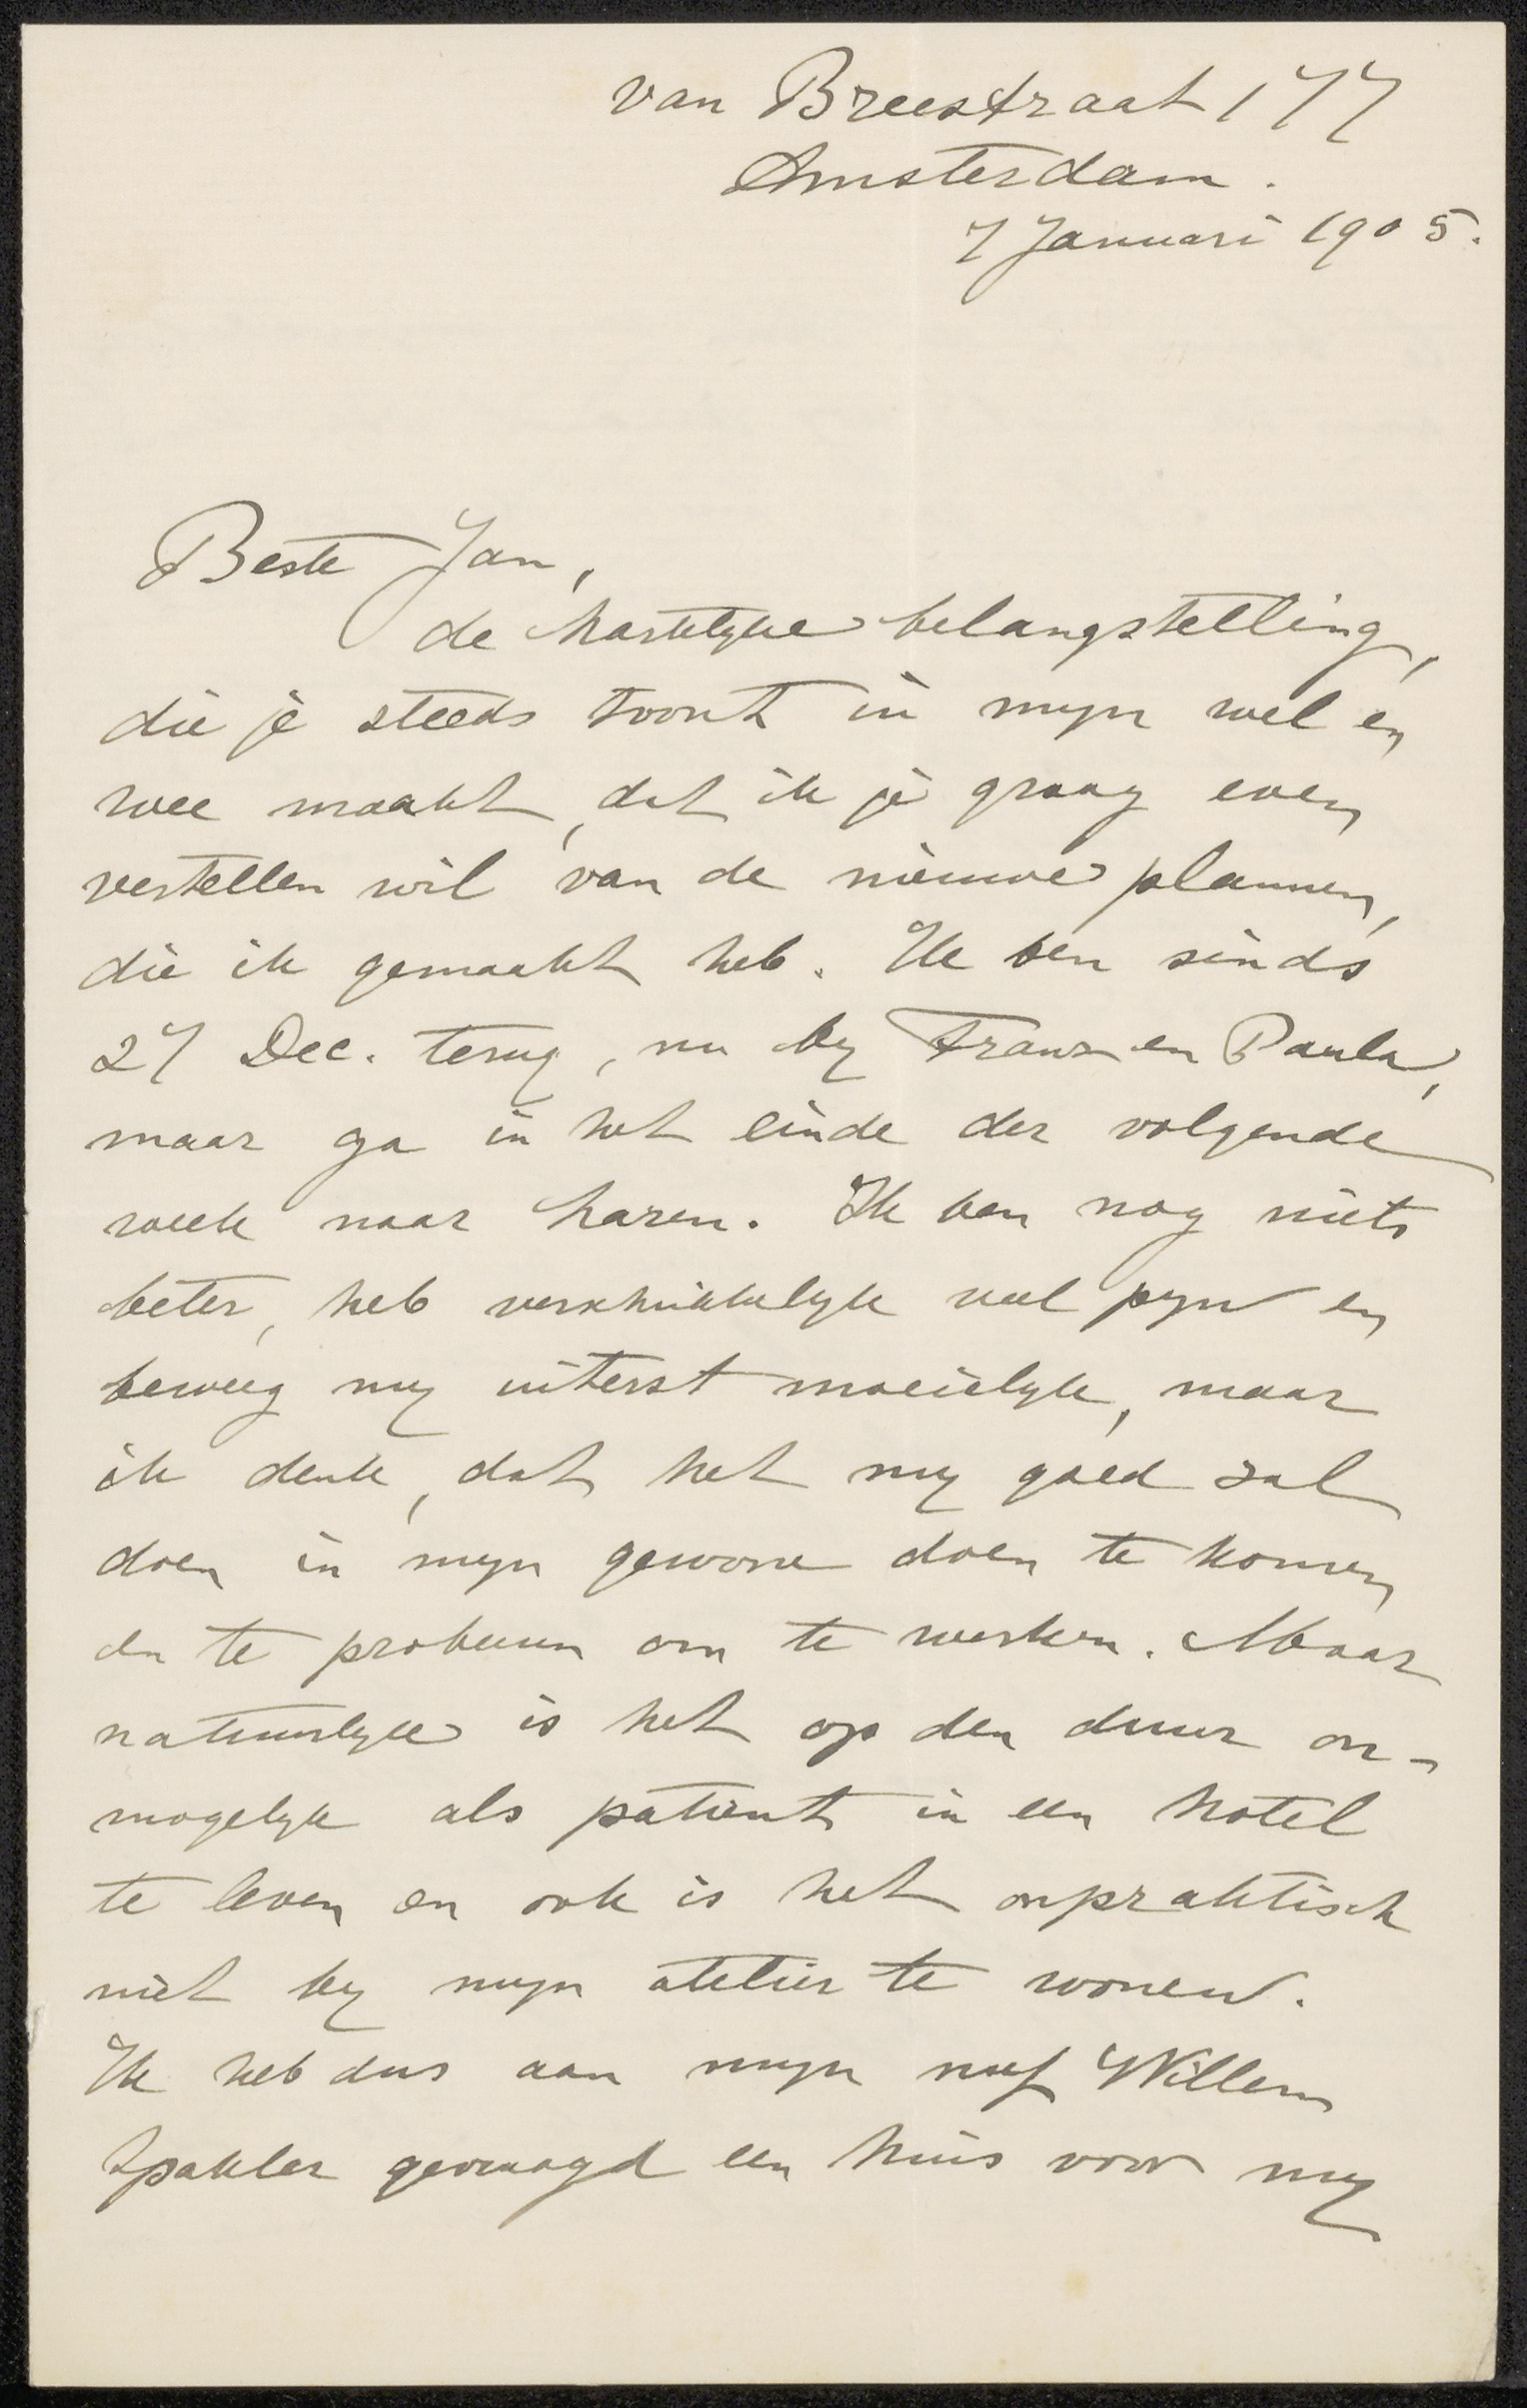 van Breestraat 177
Amsterdam.
7 Januari 1905.
Beste Jan,
de hartelyke belangstelling,
die je steeds toont in myn wel en
wee maakt, dat ik je graag even
vertellen wil van de nieuwe plannen,
die ik gemaakt heb. Ik ben sinds
27 Dec. terug, nu by Frans en Paula,
maar ga in het einde der volgende
week naar Laren. Ik ben nog niets
beter, heb verschrikkelyk veel pyn en
beweeg my uiterst moeielyk, maar
ik denk, dat het my goed zal
doen in myn gewone doen te komen
en te probeeren om te werken. Maar
natuurlyk is het op den duur on-
mogelyk als patient in een hotel
te leven en ook is het onpraktisch
niet by myn atelier te wonen.
Ik heb dus aan myn neef Willem
Spakler gevraagd een huis voor my